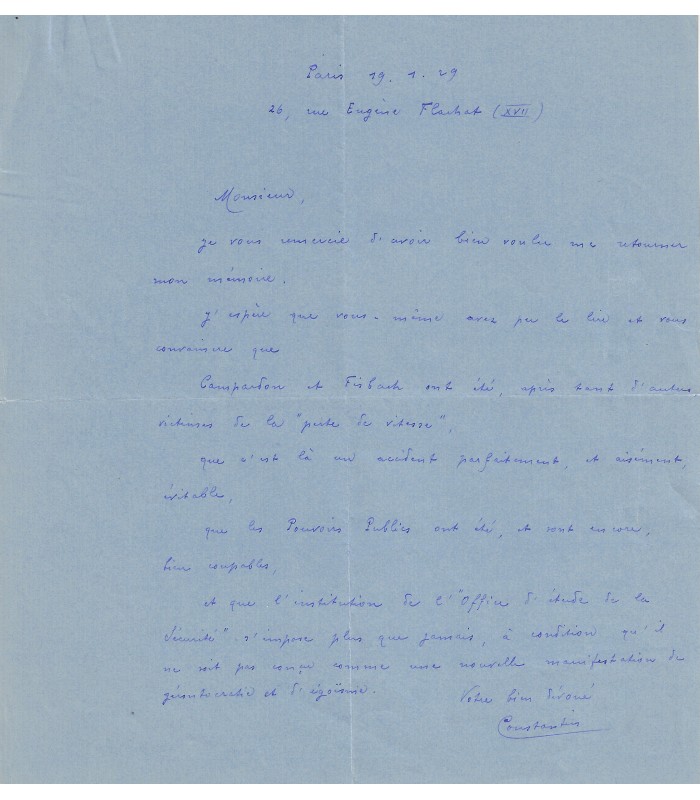 Paris 19.1.29
26, rue Eugène Flachat (XVII)
Monsieur,
je vous remercie d'avoir bien voulu me retourner
mon mémoire.
J'espère que vous-même avez pu le lire et vous
convaincre que
Campardon et Fisbach ont été, après tant d'autres
victimes de la "perte de vitesse",
que c'est là un accident parfaitement, et aisément,
évitable,
que les Pouvoirs Publics ont été, et sont encore,
bien coupables,
et que l'institution de l'"Office d'étude de la
Sécurité" s'impose plus que jamais, à condition qu'il
ne soit pas conçu comme une nouvelle manifestation de
gérontocratie et d'égoïsme.
Votre bien dévoué
Constantin